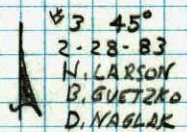 #3 45°
2-28-83
H. LARSON
B. GUETZKO
D. NAGLAK